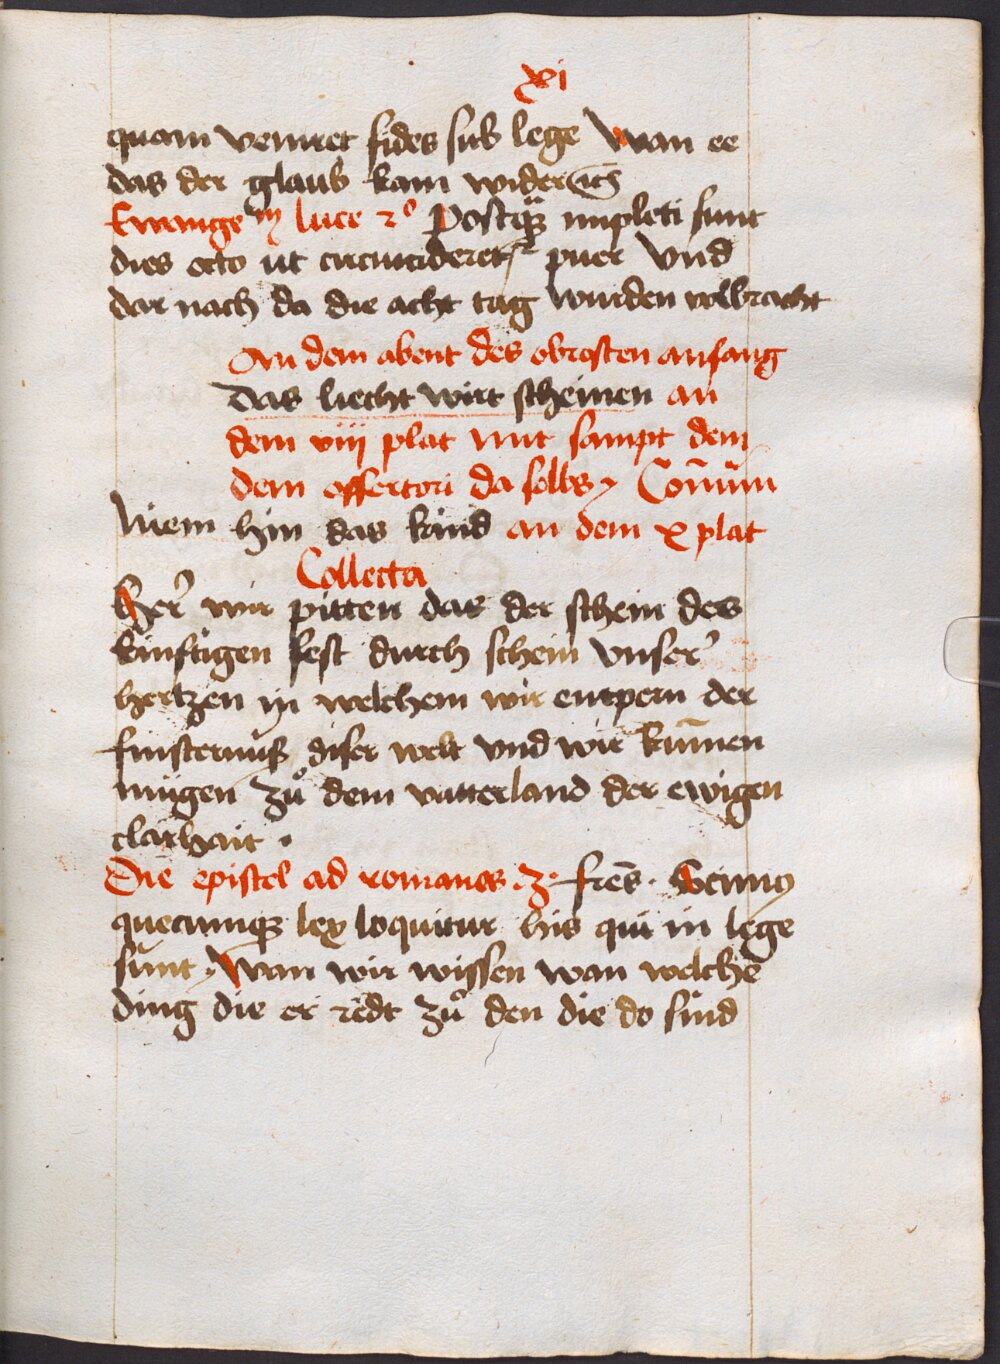 xi
quam veniret fides sub lege Wan ee
das der glaub kam wider
Ewange in luce 2° Postq̃ impleti sunt
dies octo ut circumcideret͛ puer Und
dar nach da die acht tag wurden volbracht
An dem abent des obrosten anfang
Das liecht wirt scheinen an
dem viij plat mit sampt dem
dem offertori da selbs Com̄un
Niem hin das kind an dem x plat
Collecta
Her͛ wir pitten das der schein des
künftigen fest durch schein vnser͛
hertzen in welchem wir entpern der
finsternüß diser welt vnd wir kum̄en
mügen zů dem vatterland der ewigen
clarhait .
Die epistel ad romanos .3. frēs . Scimꝰ
quecumq; lex loquitur his qui in lege
sunt . Wan wir wissen wan welche
ding die er redt zů den die do sind